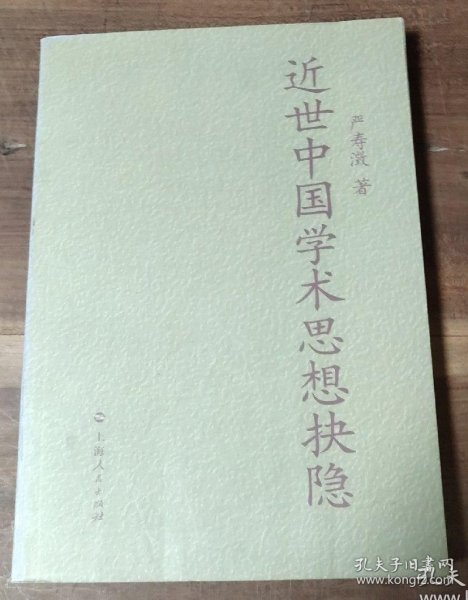 近世中国学术思想抉隐
严寿澂 著
上海人民出版社
孔夫子旧书网
www.kongfz.com